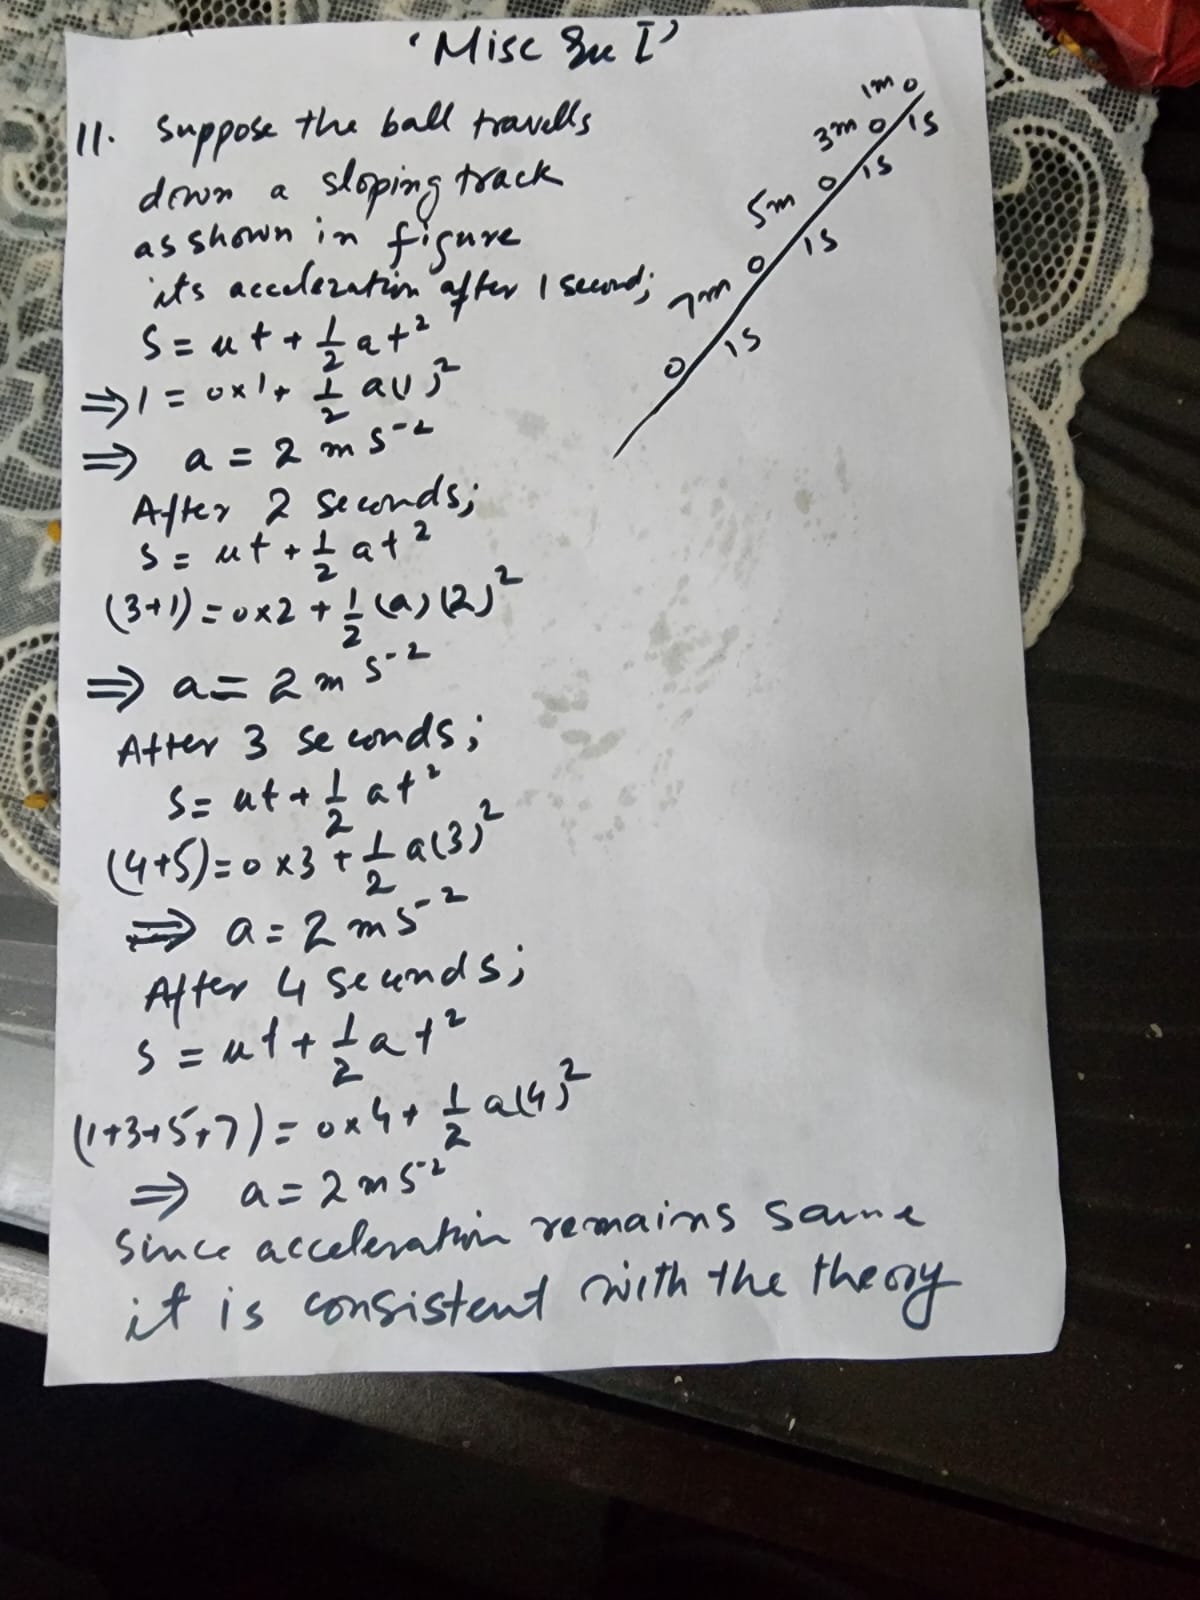 'Misc Ex I'
11. Suppose the ball travells
down a sloping track
as shown in figure
its acceleration after 1 second;
S = ut + 1/2 at²
⇒ 1 = 0×1 + 1/2 a(1)²
⇒ a = 2 m s⁻²
After 2 seconds;
s = ut + 1/2 at²
(3+1) = 0×2 + 1/2 (a)(2)²
⇒ a = 2 m s⁻²
After 3 seconds;
s = ut + 1/2 at²
(4+5) = 0×3 + 1/2 a(3)²
⇒ a = 2 m s⁻²
After 4 seconds;
s = ut + 1/2 at²
(1+3+5+7) = 0×4 + 1/2 a(4)²
⇒ a = 2 m s⁻²
Since acceleration remains same
it is consistent with the theory
1m
1s
3m
1s
5m
1s
7m
1s